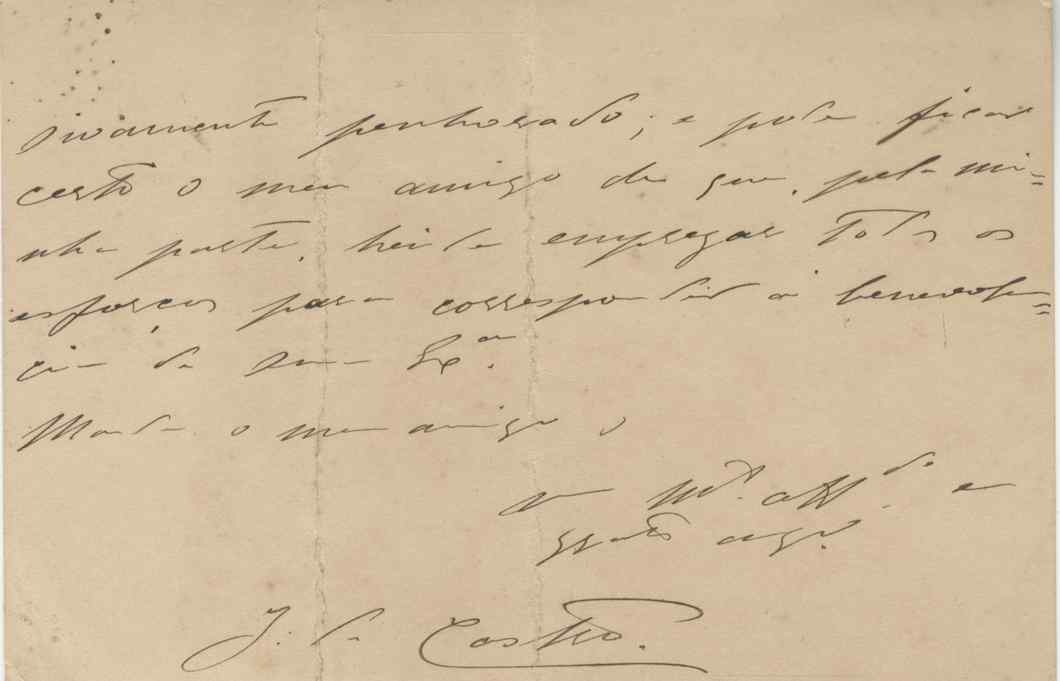 sivamente penhorado; e pode ficar
certo o meu amigo de que, pela mi=
nha parte, hei de empregar todos os
esforços para corresponder á benevolen=
cia de sua Ex.ª
Mande o meu amigo o
seu m.to aff.do e
grato am.º
J. de Castro.